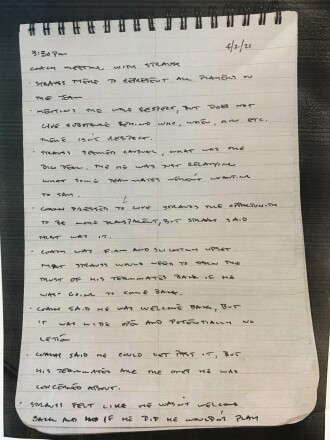 3:30pm 4/2/21
COACH MEETING WITH STRAUSS
· STRAUSS THERE TO REPRESENT ALL PLAYERS ON
THE TEAM
· MENTIONS THE WORD RESPECT, BUT DOES NOT
GIVE SUBSTANCE BEHIND WHO, WHEN, ETC.
THERE ISN'T RESPECT.
· STRAUSS SEEMED CASUAL, WHAT WAS THE
BIG DEAL. THE HE WAS JUST RELAYING
WHAT SOME TEAMMATES WEREN'T WANTING
TO SAY.
· COACH PRESSED TO GIVE STRAUSS THE OPPORTUNITY
TO BE MORE TRANSPARENT, BUT STRAUSS SAID
THAT WAS IT.
· COACH WAS FIRM AND UPSET
THAT STRAUSS WOULD NEED TO EARN THE
TRUST OF HIS TEAMMATES BACK IF HE
WAS GOING TO COME BACK.
· COACH SAID HE WAS WELCOME BACK, BUT
IT WAS WIDE OPEN AND POTENTIALLY NO
· COACH SAID HE COULD GET PAST IT, BUT
HIS TEAMMATES ARE THE ONES HE WAS
CONCERNED ABOUT.
· STRAUSS FELT LIKE HE WASN'T WELCOME
BACK AND IF HE DID HE WOULDN'T PLAY